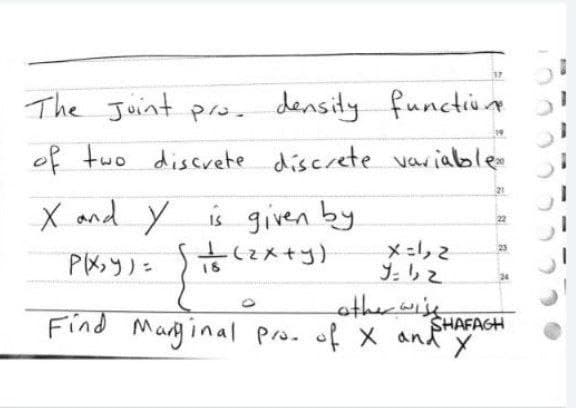 17
The Joint pro. density function
19
of two discrete discrete variable
20
21
X and Y is given by
22
P(X,y) = { 1/18 (2x+y) x=1,2
23
y=1,2
24
0 otherwise
SHAFAGH
Find Marginal pro. of X and Y